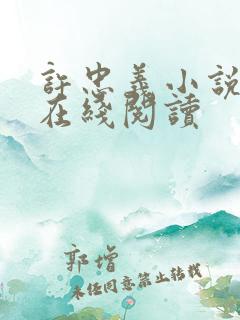 許忠義小說
在綫閱讀
郭增
未經同意禁止轉載